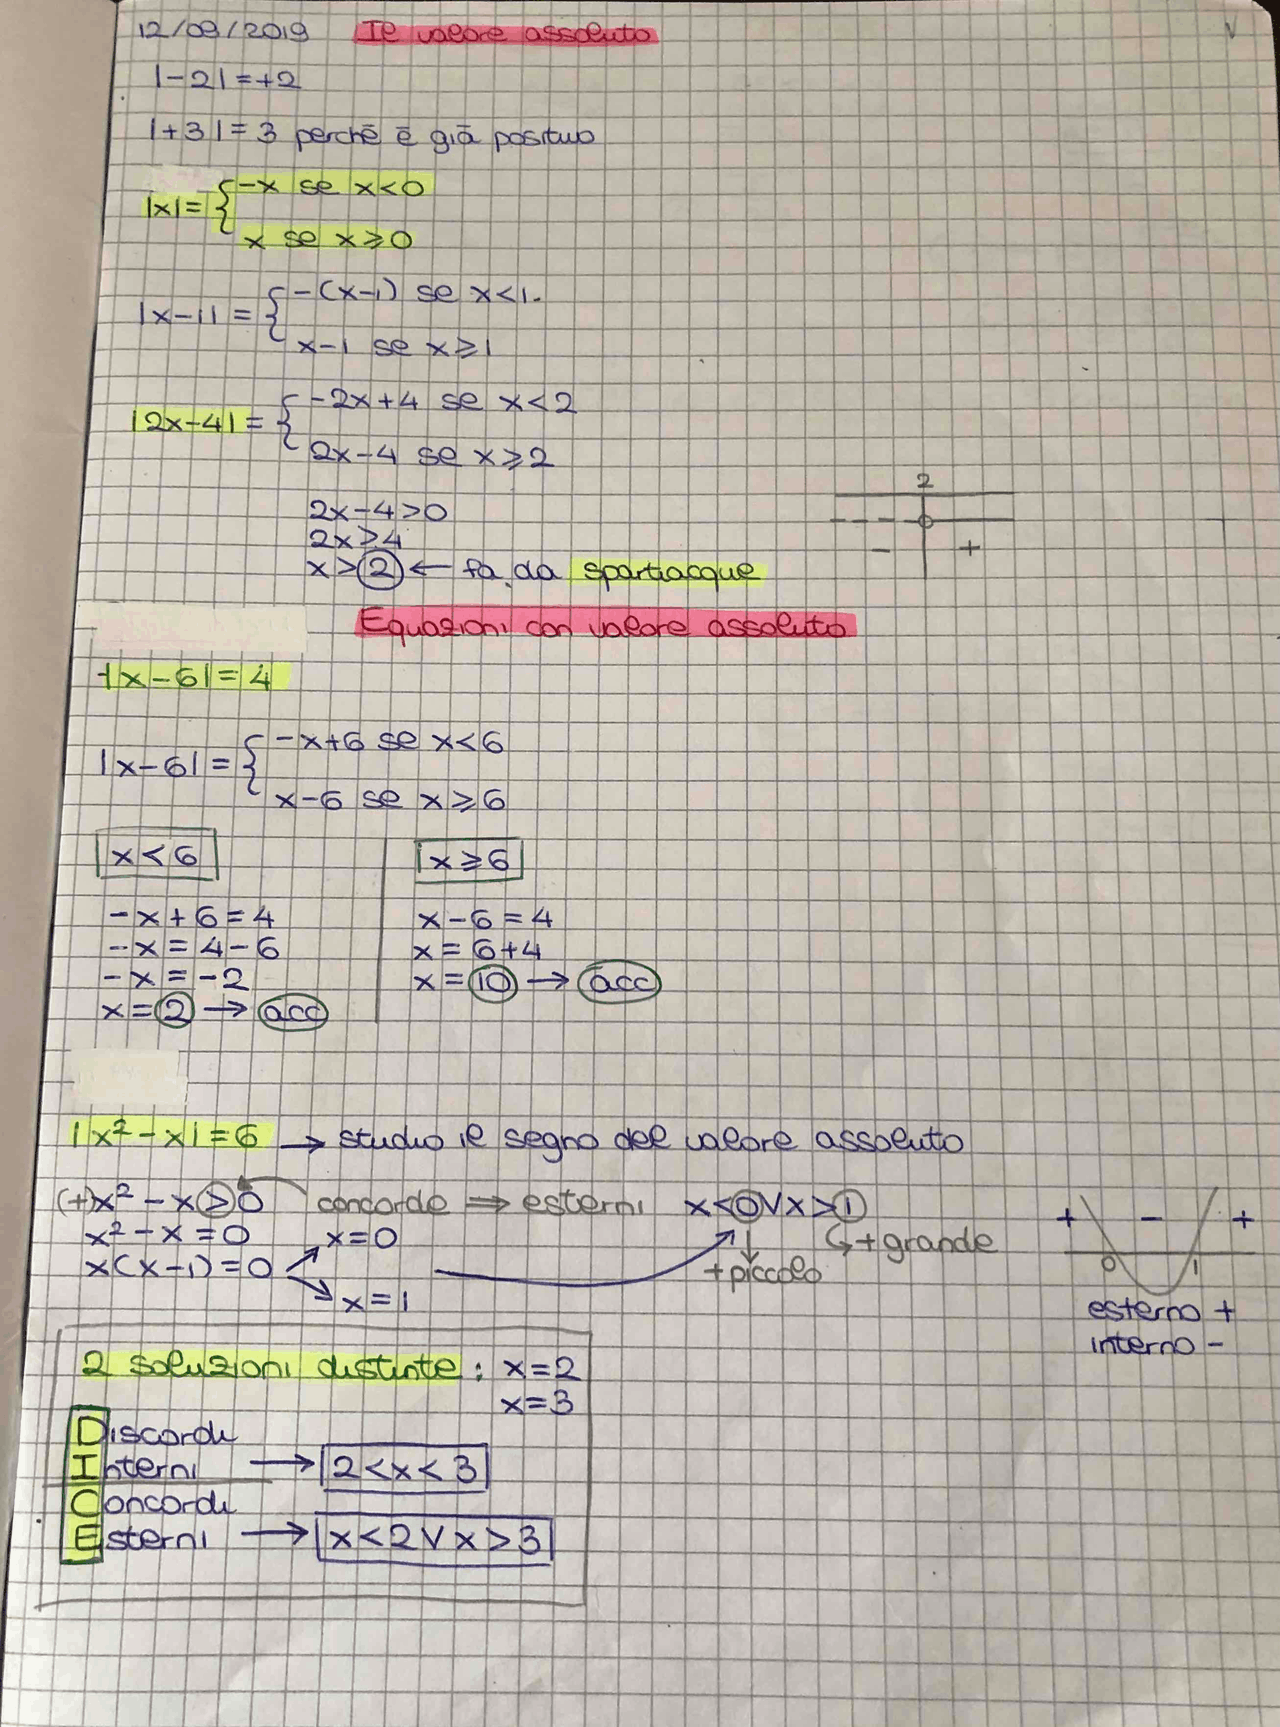 12/09/2019 Il valore assoluto
|-2|=+2
|+3|=3 perchē ē giā positivo
|x|= { -x se x<0
x se x⩾0
|x-1| = { -(x-1) se x<1.
x-1 se x⩾1
|2x-4|= { -2x+4 se x<2
2x-4 se x⩾2
2
- +
2x-4>0
2x>4
x>2 ← fa da spartiacque
Equazioni con valore assoluto
|x-6|=4
|x-6|= { -x+6 se x<6
x-6 se x⩾6
x<6 x⩾6
-x+6=4 x-6=4
-x=4-6 x=6+4
-x=-2 x=10 → acc
x=2 → acc
|x²-x|=6 → studio il segno del valore assoluto
(+)x²-x>0 concorde ⇒ esterni x<0 V x>1
x²-x=0 x=0 ↳+grande
x(x-1)=0 +piccolo
x=1
+ - +
0 1
esterno +
interno -
2 soluzioni distinte: x=2
x=3
Discordi
Interni → 2<x<3
Concordi
Esterni → x<2 V x>3